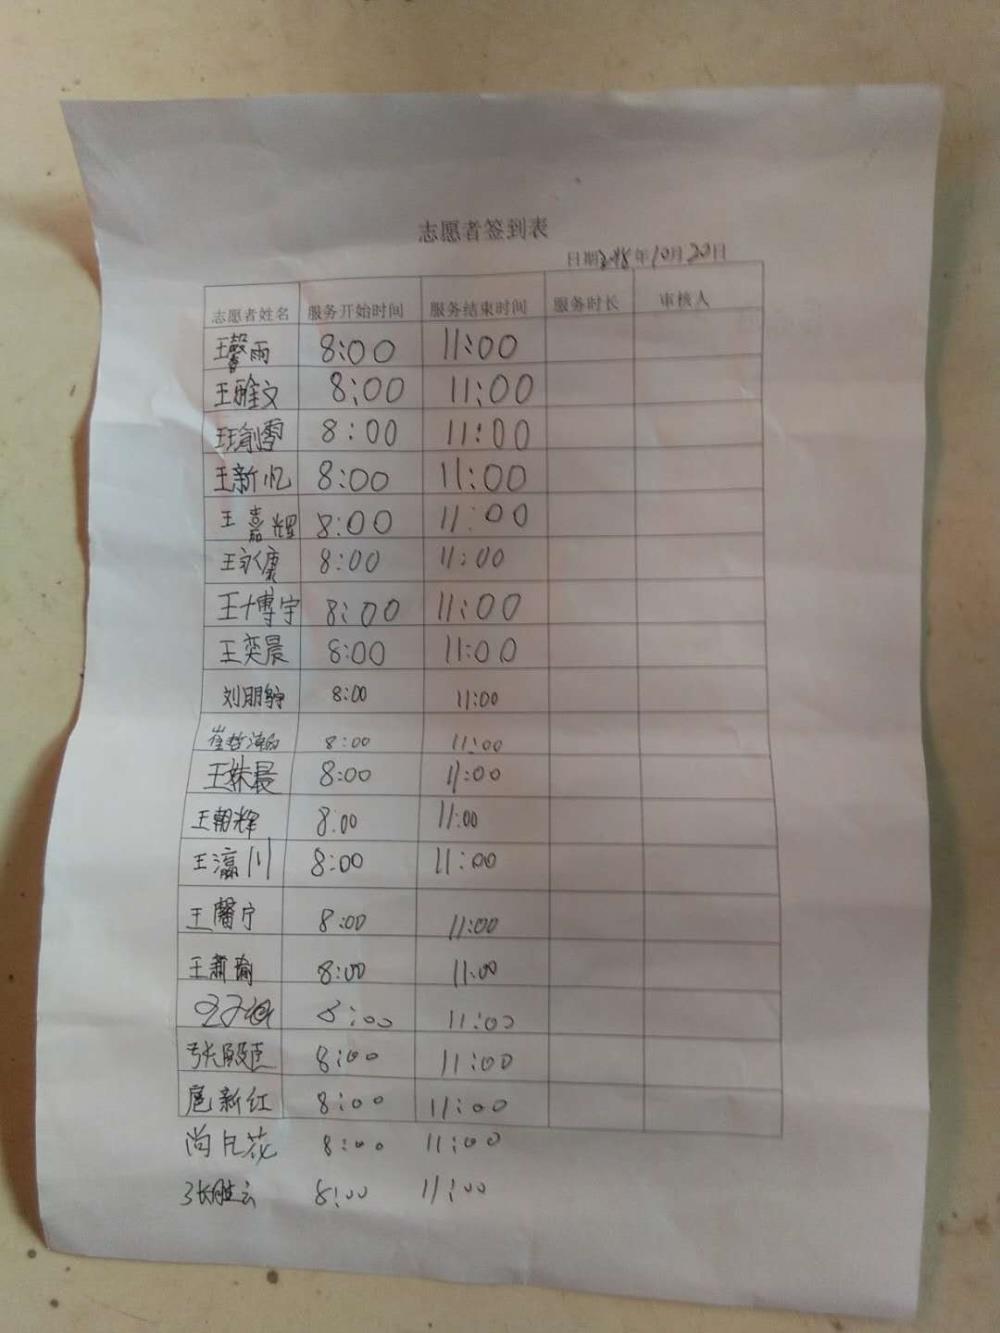 志愿者签到表
日期2018年10月20日
志愿者姓名 服务开始时间 服务结束时间 服务时长 审核人
王馨雨 8:00 11:00
王雅文 8:00 11:00
8:00 11:00
王新忆 8:00 11:00
王嘉耀 8:00 11:00
王永康 8:00 11:00
王博宇 8:00 11:00
王奕晨 8:00 11:00
刘朋 8:00 11:00
崔哲瀚 8:00 11:00
王姝晨 8:00 11:00
王朝辉 8:00 11:00
王瀛川 8:00 11:00
王馨宁 8:00 11:00
王萧瑜 8:00 11:00
8:00 11:00
张殿臣 8:00 11:00
扈新红 8:00 11:00
尚凡花 8:00 11:00
张胜云 8:00 11:00